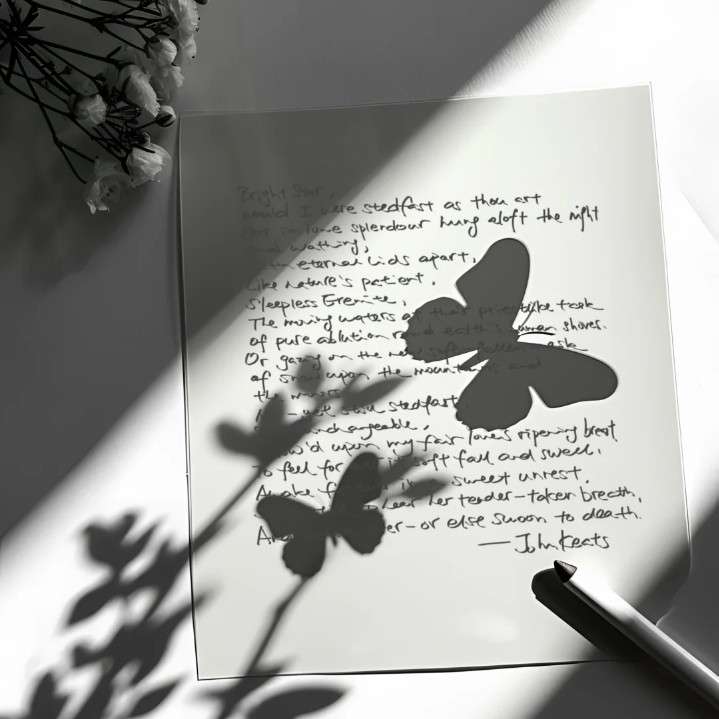 Bright Star,
would I were stedfast as thou art
splendour hung aloft the night
wathing,
eternal lids apart,
Like nature's patient,
Sleepless Eremite,
The moving waters at their priestlike task
of pure ablution round earth's human shores.
Or gazing on the new soft-fallen mask
of snow upon the mountains and
the moors
No-yet still stedfast
unchangeable,
Pillow'd upon my fair love's ripening breast
To feel for its soft fall and swell,
Awake for in sweet unrest.
hear her tender-taken breath,
ever-or else swoon to death.
—John Keats